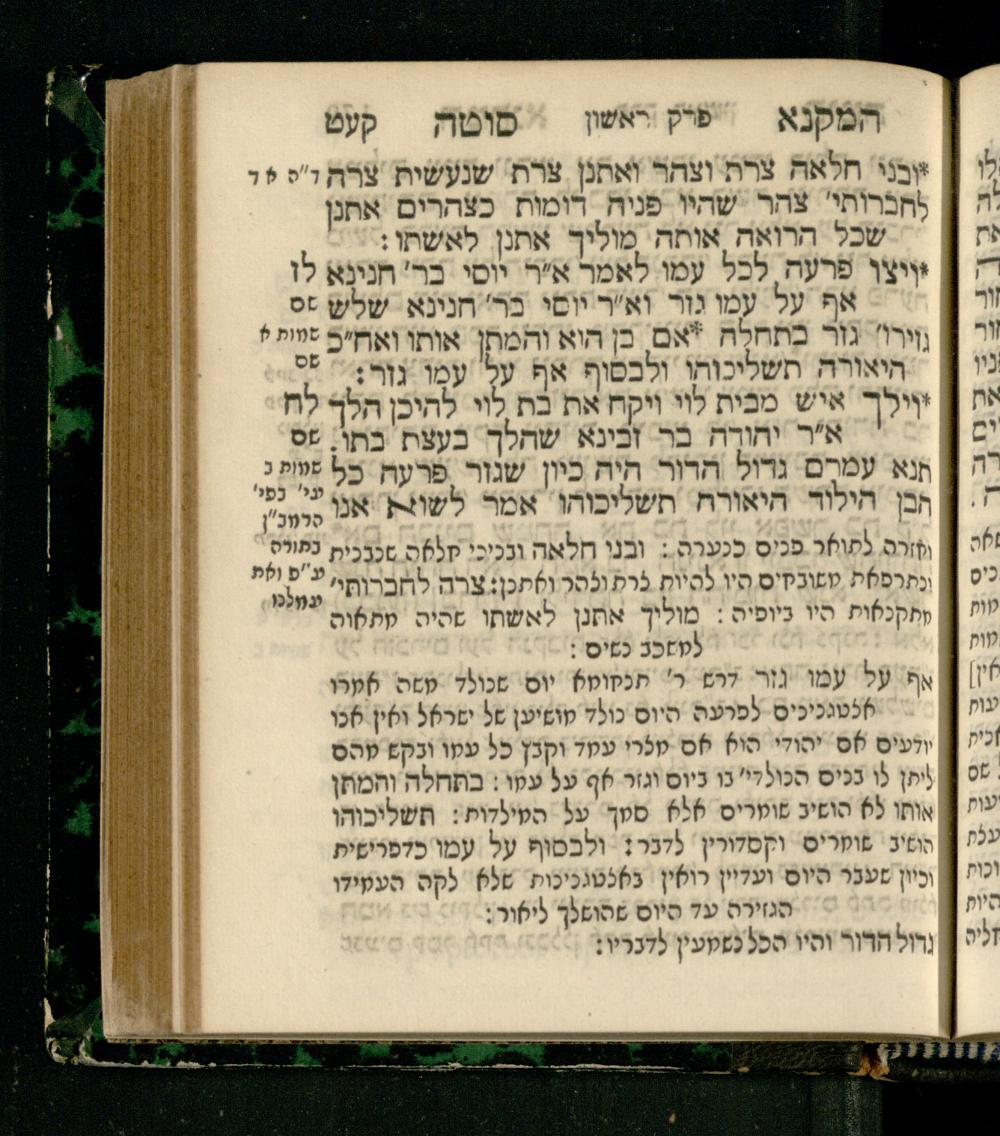 המקנא פרק ראשון סוטה קעט
*ובני חלאה צרת וצהר ואתנן צרת שנעשית צרה
לחברותי' צהר שהיו פניה דומות כצהרים אתנן
שכל הרואה אותה מוליך אתנן לאשתו:
*ויצו פרעה לכל עמו לאמר א״ר יוסי בר' חנינא
אף על עמו גזר וא״ר יוסי בר' חנינא שלש
גזירו' גזר בתחלה *אם בן הוא והמתן אותו ואח״כ
היאורה תשליכוהו ולבסוף אף על עמו גזר:
*וילך איש מבית לוי ויקח את בת לוי להיכן הלך
א״ר יהודה בר זבינא שהלך בעצת בתו.
תנא עמרם גדול הדור היה כיון שגזר פרעה כל
הבן הילוד היאורה תשליכוהו אמר לשוא אנו
וחזרה לתואר פנים כנערה: ובני חלאה ובניכי חלאה שנבנית
ונתרפאת משובחים היו להיות צרת וצהר ואתנן: צרה לחברותי'
מתקנאות היו ביופיה: מוליך אתנן לאשתו שהיה מתאוה
למשכב נשים:
אף על עמו גזר דרש ר' תנחומא יום שנולד משה אמרו
אצטגנינים לפרעה היום נולד מושיען של ישראל ואין אנו
יודעים אם יהודי הוא אם מצרי עמד וקבץ כל עמו ובקש מהם
ליתן לו בנים הנולדי' בו ביום וגזר אף על עמו: בתחלה והמתן
אותו לא הושיב שומרים אלא סמך על המילדות: תשליכוהו
הושיב שומרים וקסדורין לדבר: ולבסוף על עמו כדפרישית
וכיון שעבר היום ועדיין רואין באצטגנינות שלא לקה העמידו
הגזירה עד היום שהושלך ליאור:
גדול הדור והיו הכל נשמעין לדבריו:
ד״ה א ד
לז
שם
שמות א
שם
לח
שם
שמות ב
עי' בפי'
הרמב״ן
בתורה
ע״פ ואת
עמלנו